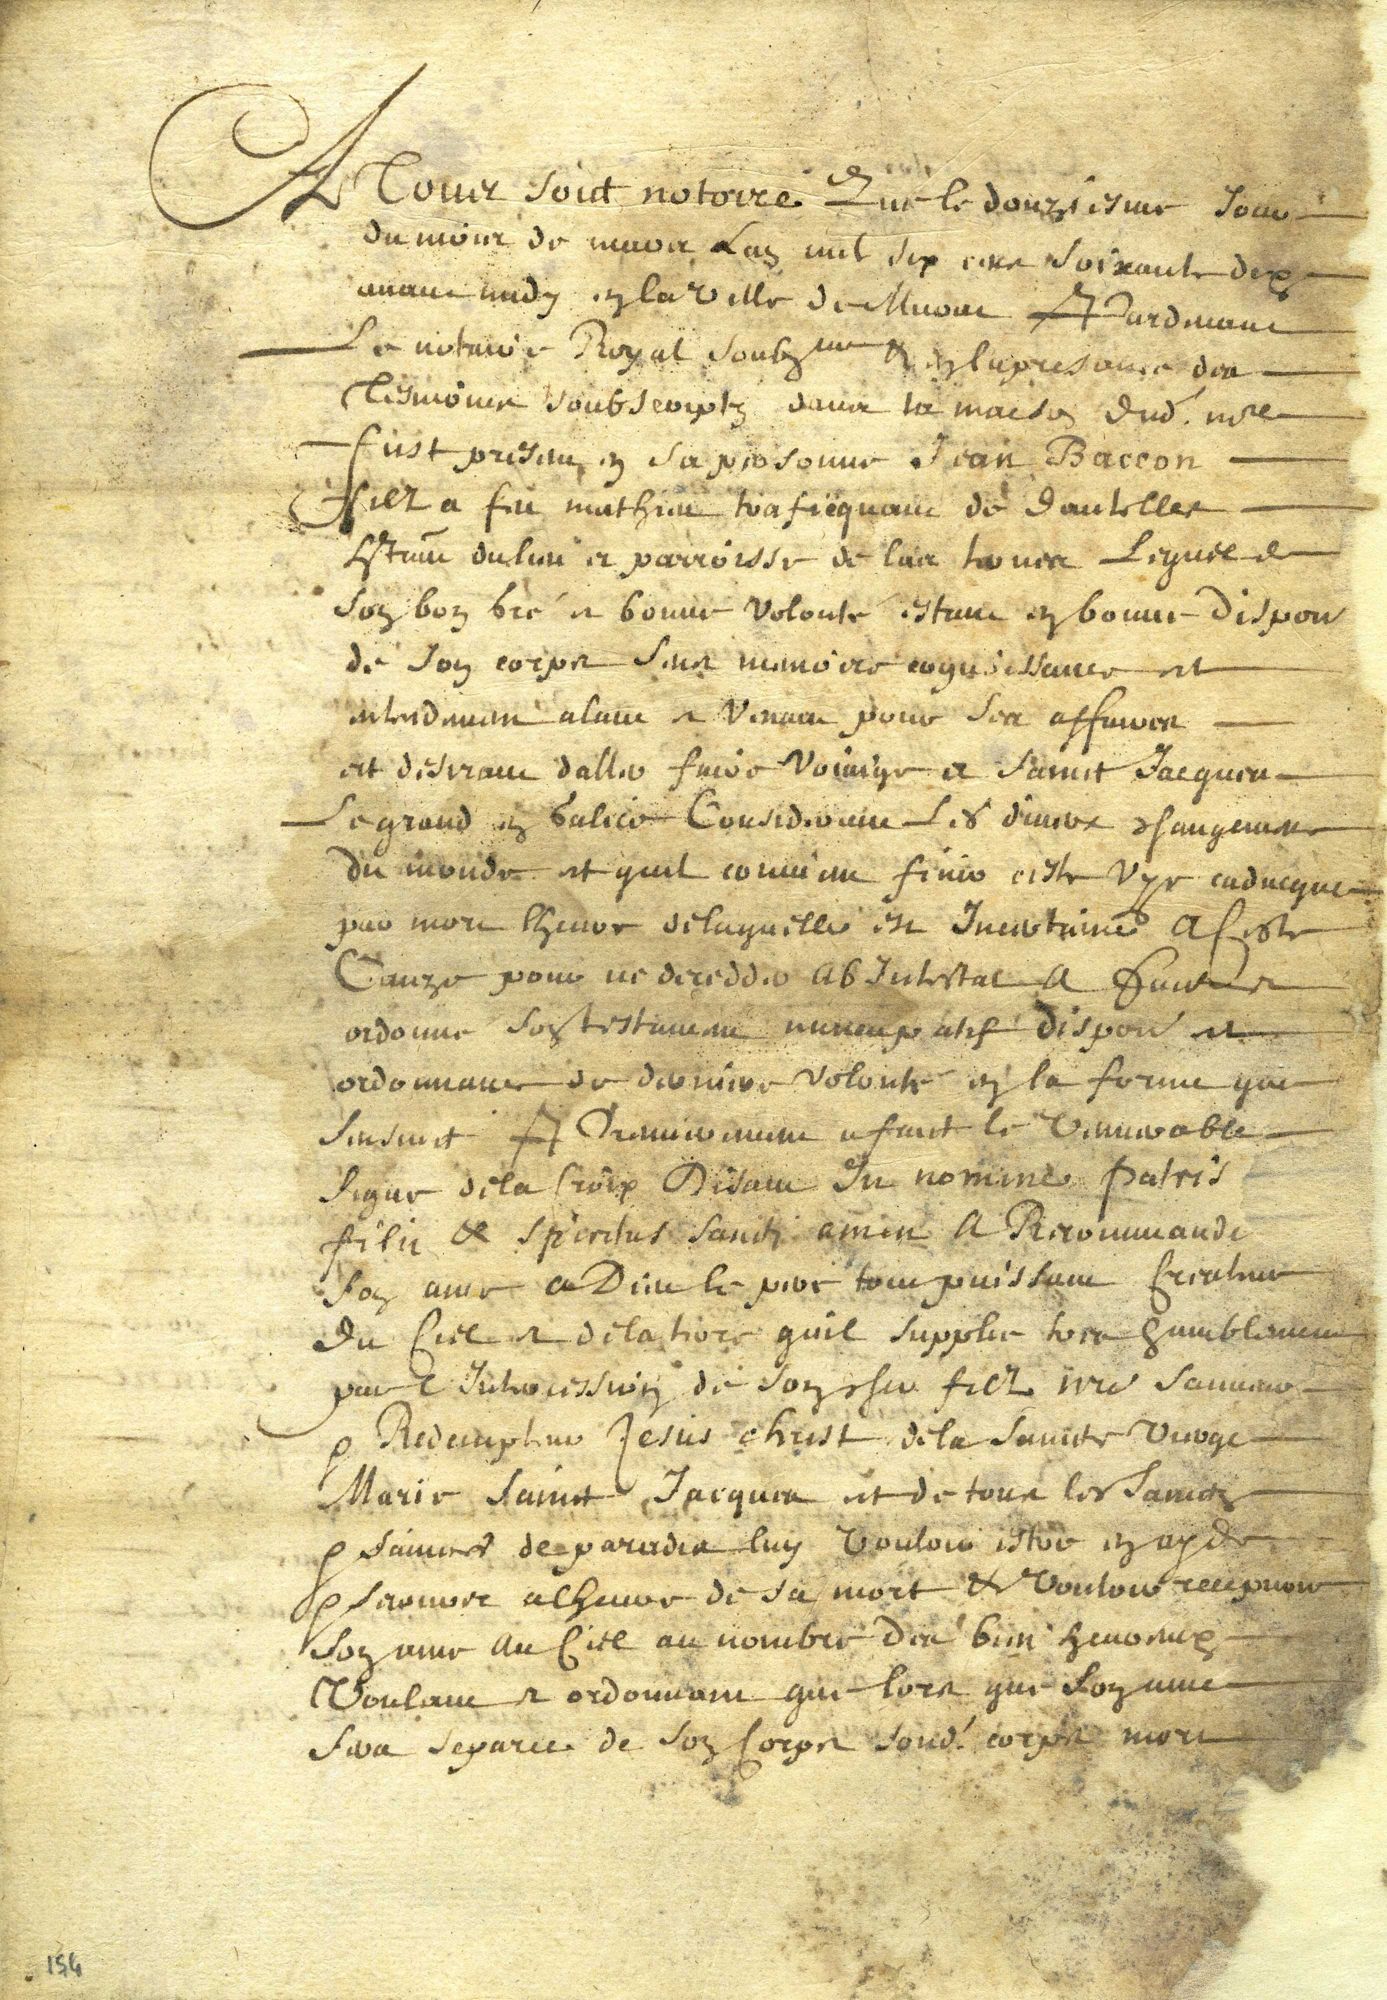 A Tous soict notoire Que le douziesme jour
du mois de mars Lan mil six cens soixante dix
avant midy en la ville de Murat Pardevant
Le notaire Royal soubzne & en la presence des
Tesmoins soubscriptz dans la maison dud. nore
fust present en sa personne Jean Baccon
filz a feu mathieu traficquant de dantelles
du lieu et parroisse de las Lequel de
son bon gré et bonne volonté estant en bonne dispon
de son corps sens memoire cognoissance et
entendemen alant et venant pour ses affaires
et desirant daller faire voiaige a Sainct Jacques
Le grand en Galice Considerant Les divers changemens
du monde et quil convien finir ceste vye caducque
par mort lheure de laquelle est Incertaine A ceste
Cauze pour ne decedder ab Intestat A faict et
ordonne son testament nuncupatif dispon et
ordonnance de derniere volonte en la forme que
sensuict Premierement a faict le venerable
signe de la Croix Disant In nomine patris
filii & spiritus sancti amen A Recommande
son ame a Dieu le pere tout puissant Createur
du Ciel et de la terre quil supplie tres humblement
par l Intercession de son cher filz nre sauveur
& Redempteur Jesus christ de la saincte vierge
Marie sainct Jacques et de tous les sainctz
& sainctes de paradis luy vouloir estre en ayde
& secours a lheure de sa mort & vouloir recepvoir
son ame au Ciel au nombre des bien heureux
voulant et ordonnant que lors que son ame
sera separee de son Corps sond. corps mort
154